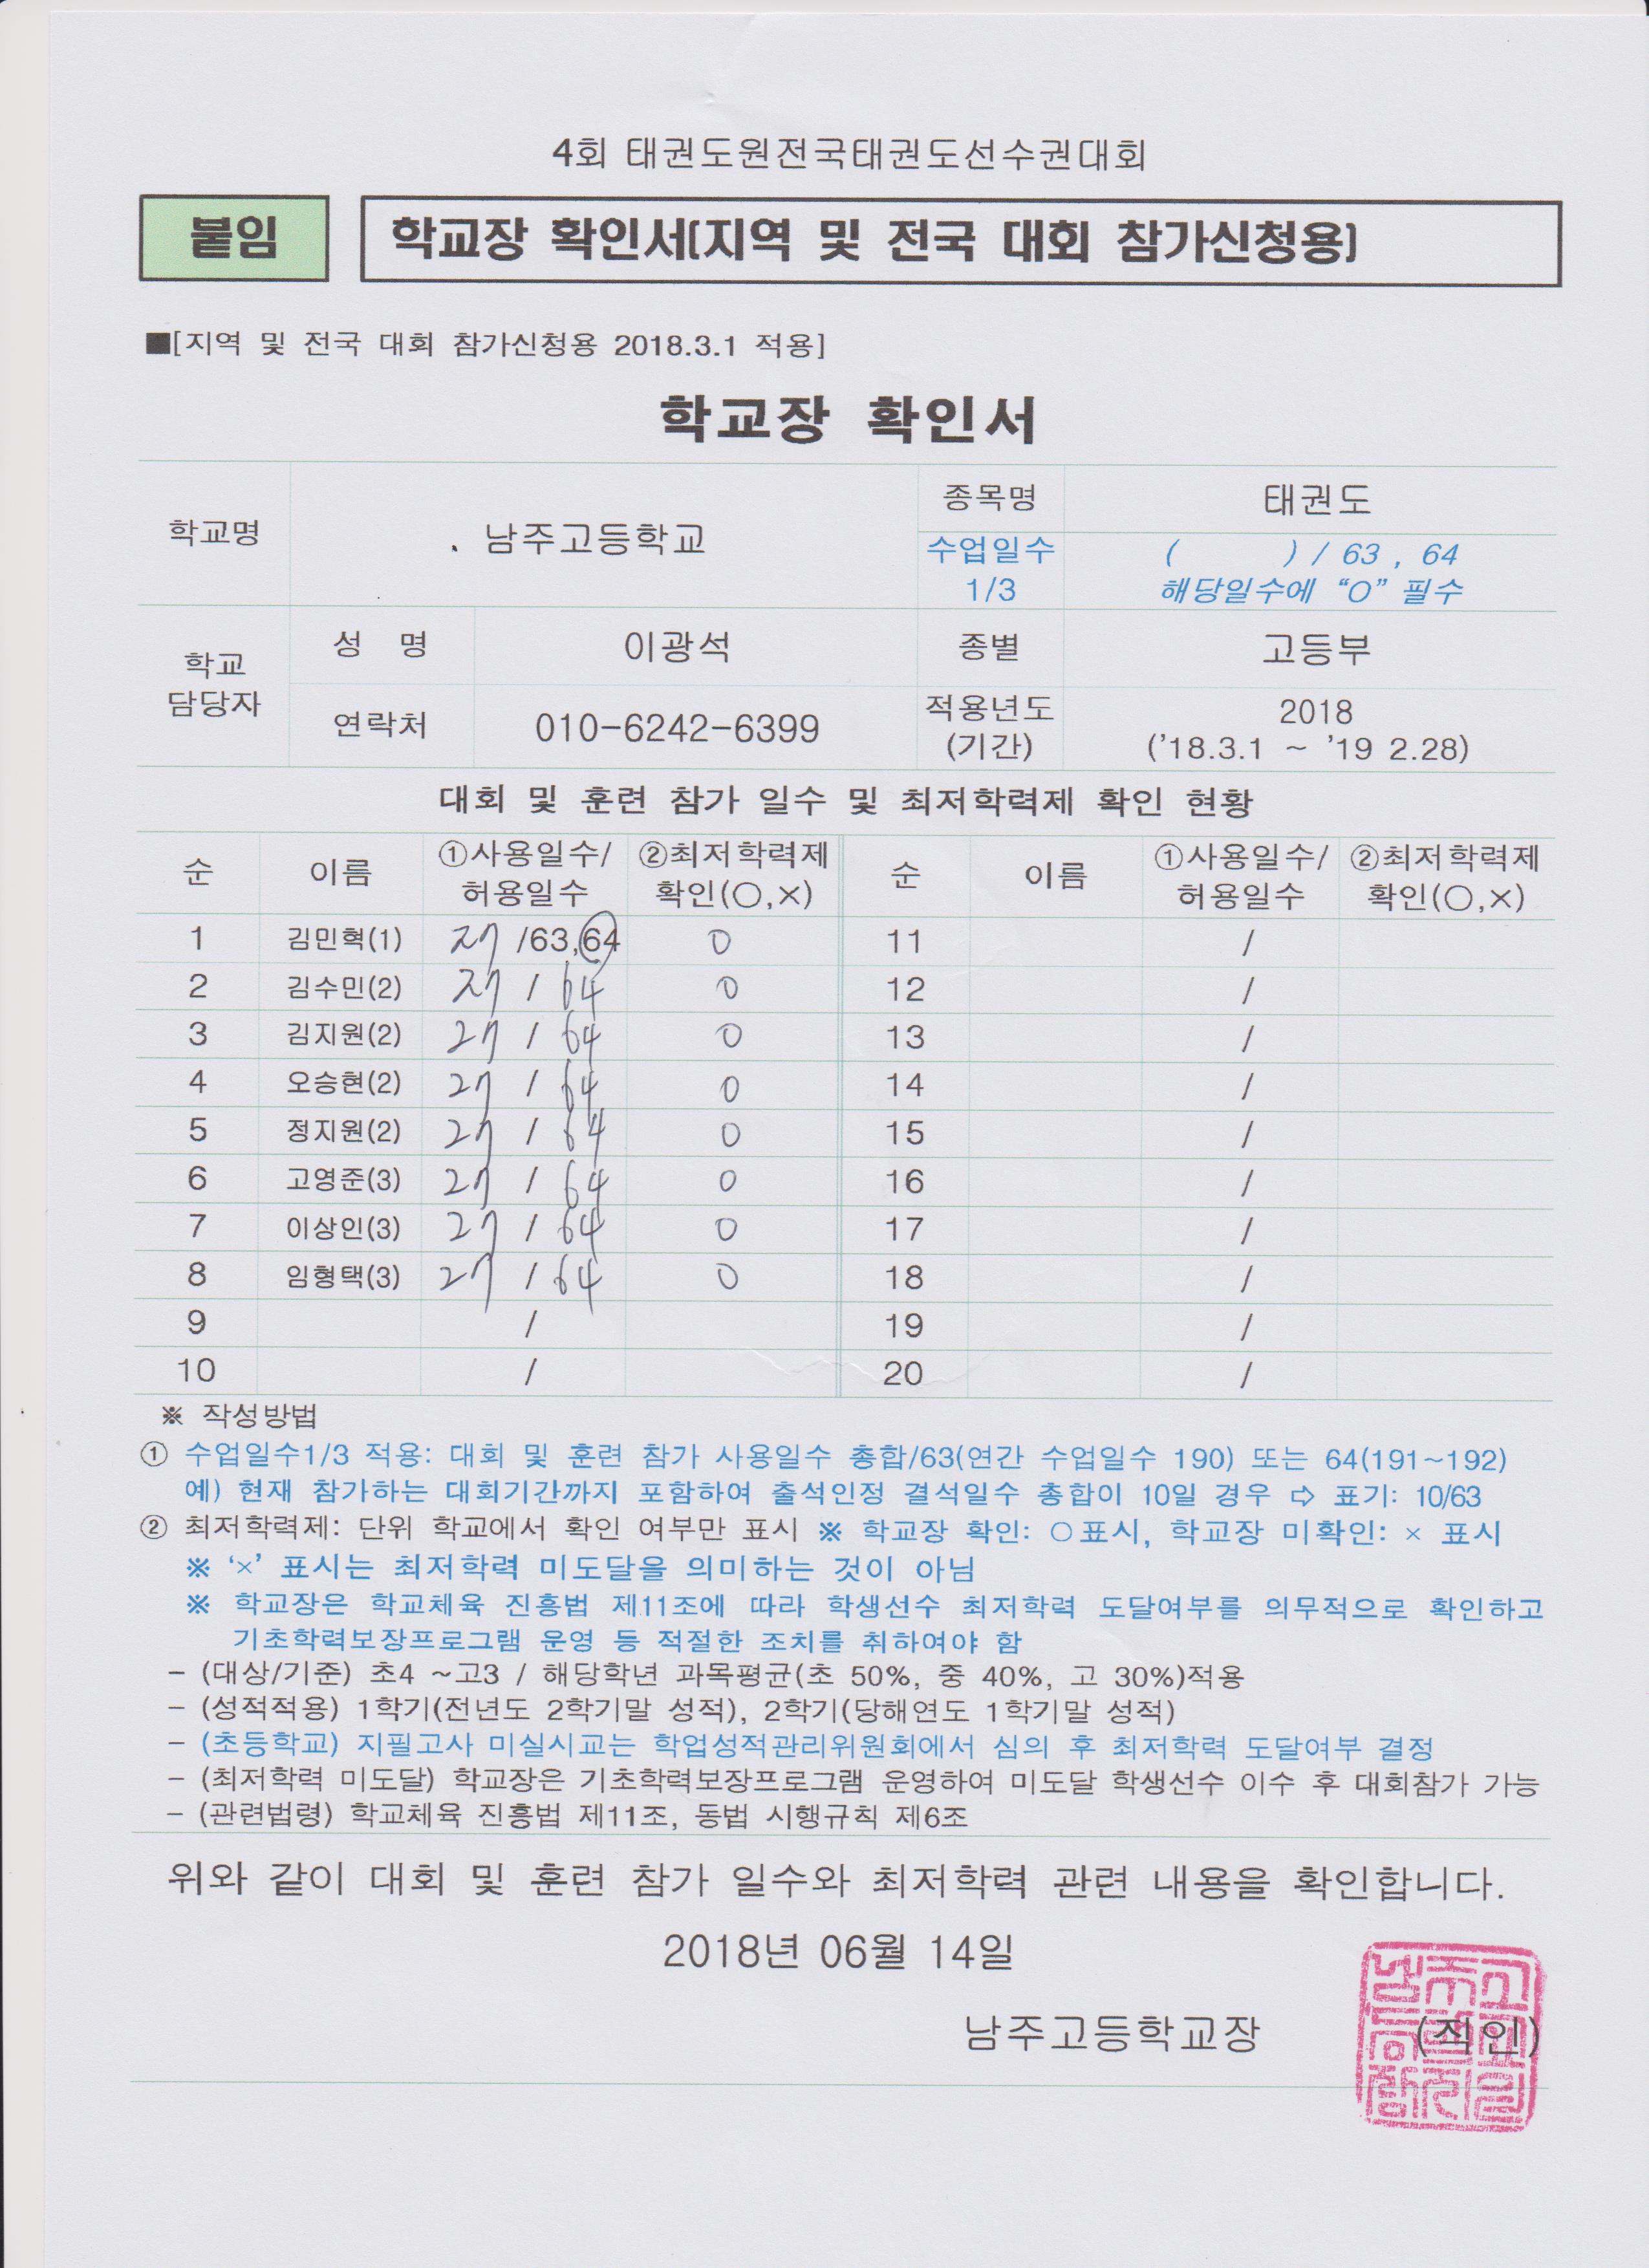 4회 태권도원전국태권도선수권대회
붙임 학교장 확인서(지역 및 전국 대회 참가신청용)
■[지역 및 전국 대회 참가신청용 2018.3.1 적용]
학교장 확인서
학교명 . 남주고등학교 종목명 태권도
수업일수 1/3 ( ) / 63 , 64
해당일수에 “O” 필수
학교 담당자 성 명 이광석 종별 고등부
연락처 010-6242-6399 적용년도 (기간) 2018
('18.3.1 ~ '19 2.28)
대회 및 훈련 참가 일수 및 최저학력제 확인 현황
순 이름 ①사용일수/ 허용일수 ②최저학력제 확인(○,×) 순 이름 ①사용일수/ 허용일수 ②최저학력제 확인(○,×)
1 김민혁(1) 27 /63,64 0 11 /
2 김수민(2) 27 / 64 0 12 /
3 김지원(2) 27 / 64 0 13 /
4 오승현(2) 27 / 64 0 14 /
5 정지원(2) 27 / 64 0 15 /
6 고영준(3) 27 / 64 0 16 /
7 이상인(3) 27 / 64 0 17 /
8 임형택(3) 27 / 64 0 18 /
9 / 19 /
10 / 20 /
※ 작성방법
① 수업일수1/3 적용: 대회 및 훈련 참가 사용일수 총합/63(연간 수업일수 190) 또는 64(191~192)
예) 현재 참가하는 대회기간까지 포함하여 출석인정 결석일수 총합이 10일 경우 ⇨ 표기: 10/63
② 최저학력제: 단위 학교에서 확인 여부만 표시 ※ 학교장 확인: ○표시, 학교장 미확인: × 표시
※ ‘×’ 표시는 최저학력 미도달을 의미하는 것이 아님
※ 학교장은 학교체육 진흥법 제11조에 따라 학생선수 최저학력 도달여부를 의무적으로 확인하고
기초학력보장프로그램 운영 등 적절한 조치를 취하여야 함
- (대상/기준) 초4 ~고3 / 해당학년 과목평균(초 50%, 중 40%, 고 30%)적용
- (성적적용) 1학기(전년도 2학기말 성적), 2학기(당해연도 1학기말 성적)
- (초등학교) 지필고사 미실시교는 학업성적관리위원회에서 심의 후 최저학력 도달여부 결정
- (최저학력 미도달) 학교장은 기초학력보장프로그램 운영하여 미도달 학생선수 이수 후 대회참가 가능
- (관련법령) 학교체육 진흥법 제11조, 동법 시행규칙 제6조
위와 같이 대회 및 훈련 참가 일수와 최저학력 관련 내용을 확인합니다.
2018년 06월 14일
남주고등학교장 (직인)